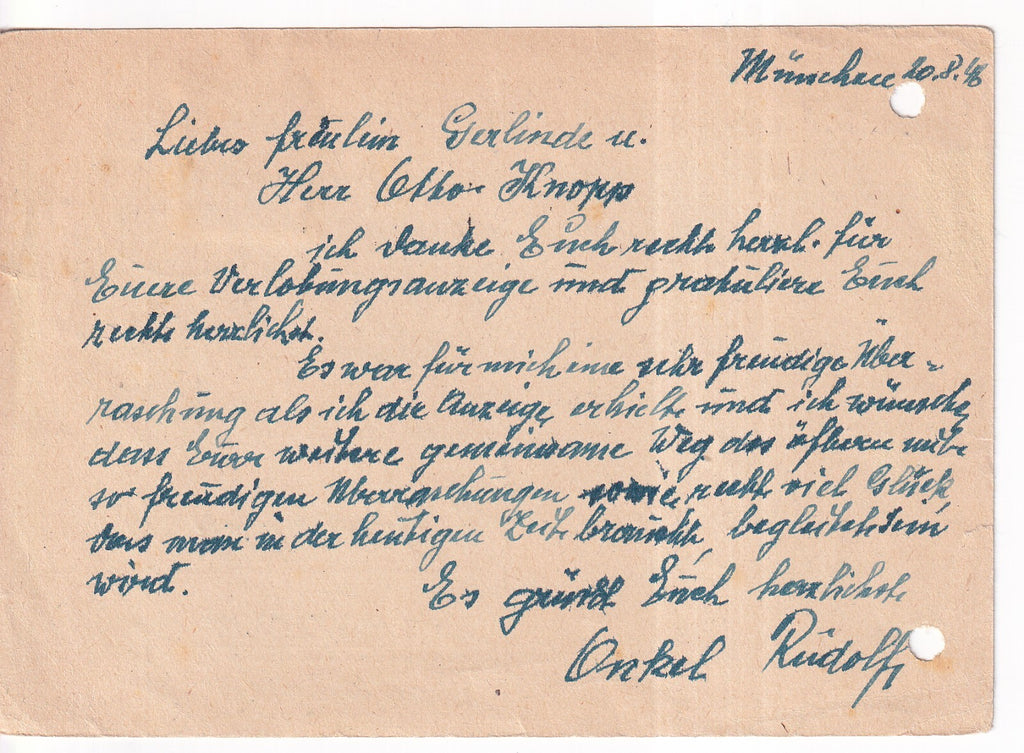 München 20.8.48
Liebes Fräulein Gerlinde u.
Herr Otto Knopp
ich danke Euch recht herzl. für
Euere Verlobungsanzeige und gratuliere Euch
recht herzlichst.
Es war für mich eine sehr freudige Über-
raschung als ich die Anzeige erhielt und ich wünsche,
dass Euer weitere gemeinsame Weg des öftern mit
so freudigen Überraschungen sowie recht viel Glück,
das man in der heutigen Zeit braucht, begleitet sein
wird.
Es grüsst Euch herzlichst
Onkel Rudolf